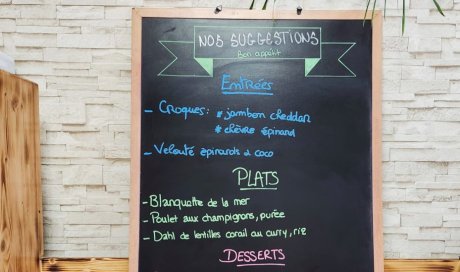 NOS SUGGESTIONS
Bon appétit
ENTRÉES
- CROQUES: * jambon cheddar
* chèvre épinard
- Velouté épinards & coco
PLATS
- Blanquette de la mer
- Poulet aux champignons, purée
- Dahl de lentilles corail au curry, riz
DESSERTS